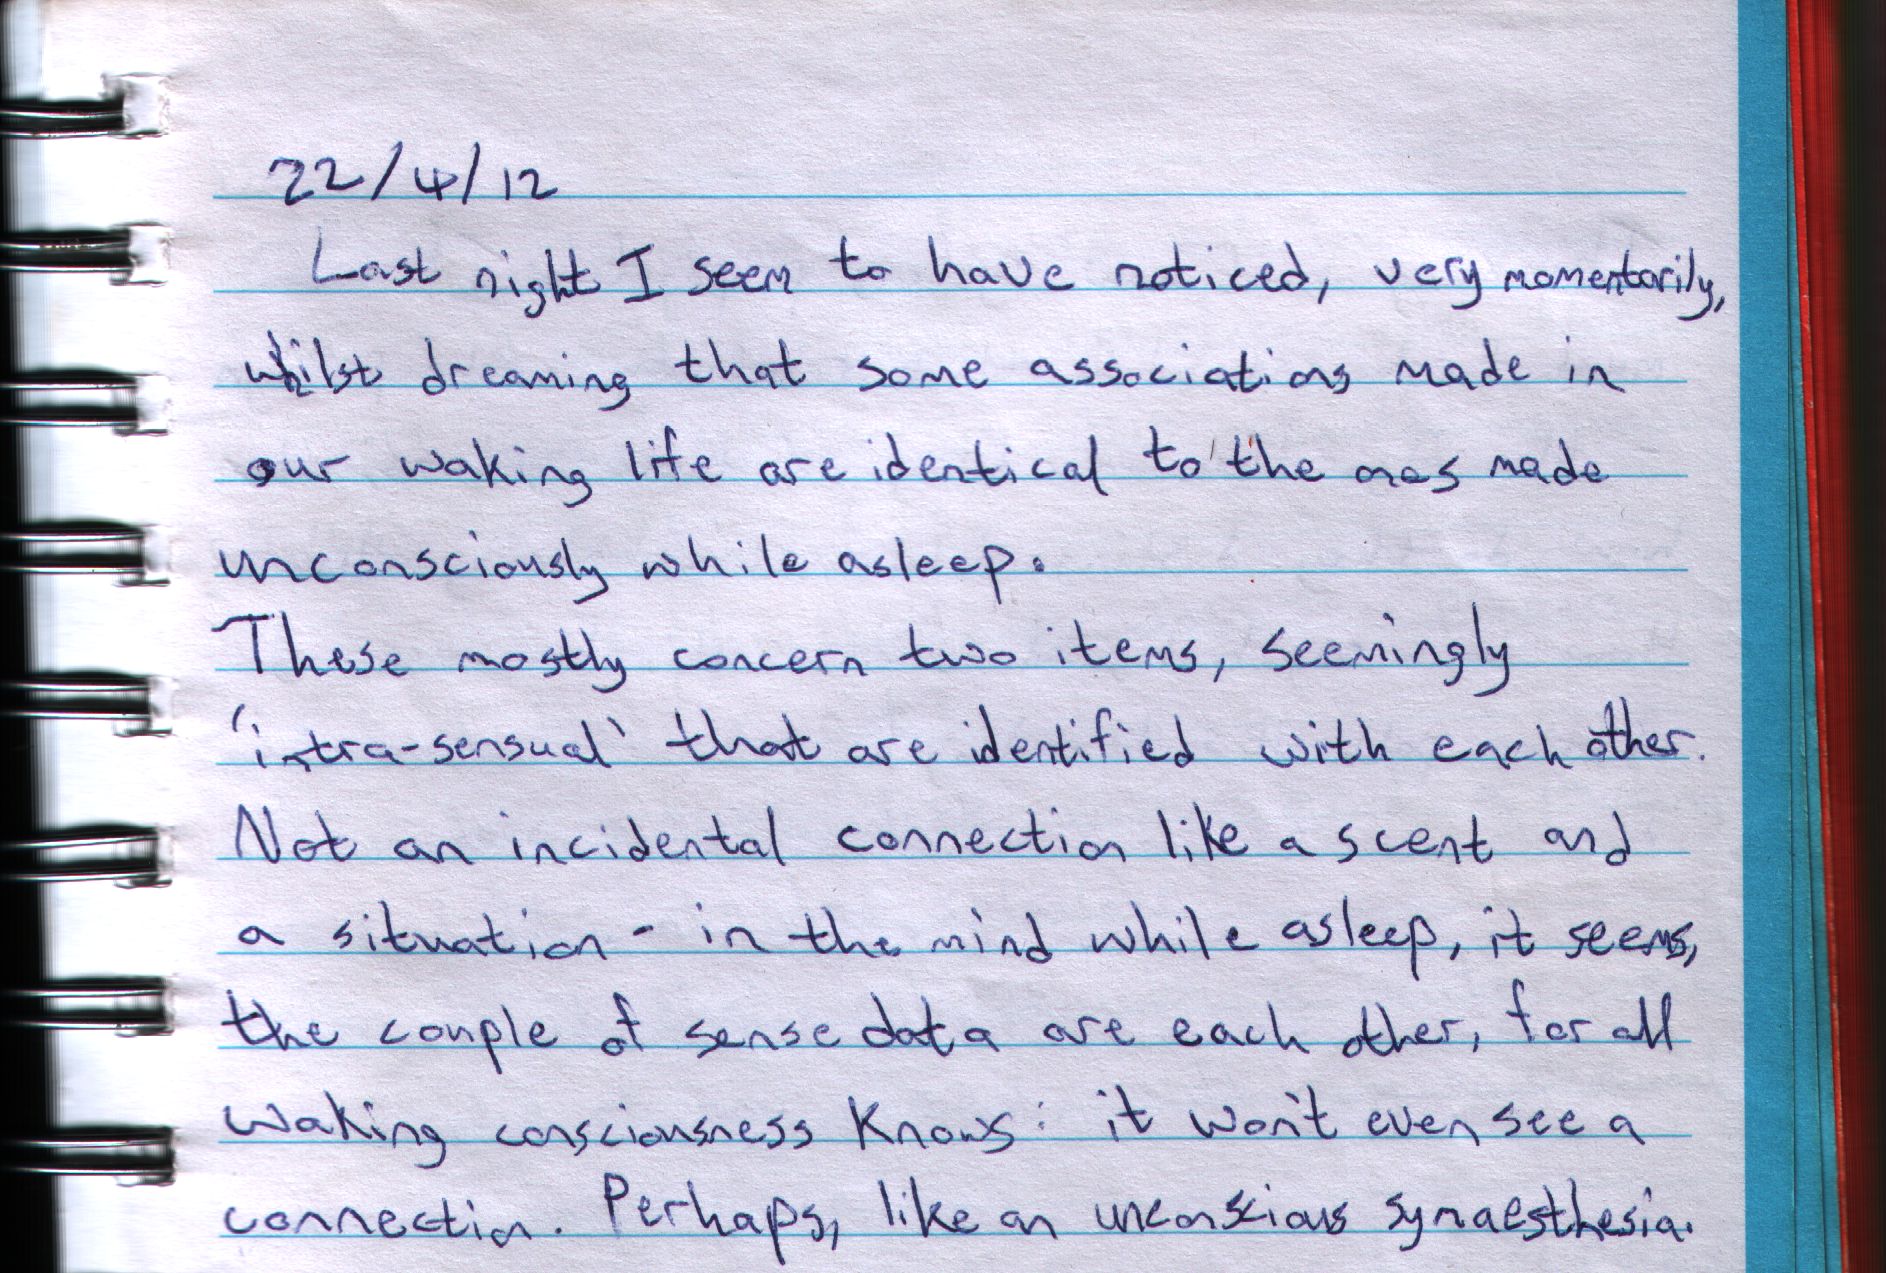 22/4/12
Last night I seem to have noticed, very momentarily,
whilst dreaming that some associations made in
our waking life are identical to the ones made
unconsciously while asleep.
These mostly concern two items, seemingly
'intra-sensual' that are identified with each other.
Not an incidental connection like a scent and
a situation - in the mind while asleep, it seems,
the couple of sense data are each other, for all
waking consciousness knows: it won't even see a
connection. Perhaps, like an unconscious synaesthesia.